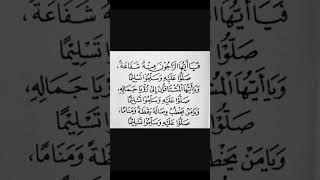 فَيَا أَيُّهَا الرَّاجُونَ مِنْهُ شَفَاعَةً،
صَلُّوا عَلَيْهِ وَسَلِّمُوا تَسْلِيْمًا
وَيَا أَيُّهَا الْمُشْتَاقُونَ إِلَى رُؤْيَا جَمَالِهِ،
صَلُّوا عَلَيْهِ وَسَلِّمُوا تَسْلِيْمًا
وَيَا مَنْ يَخْطُبُ وِصَالَهُ يَقَظَةً وَمَنَامًا،
صَلُّوا عَلَيْهِ وَسَلِّمُوا تَسْلِيْمًا